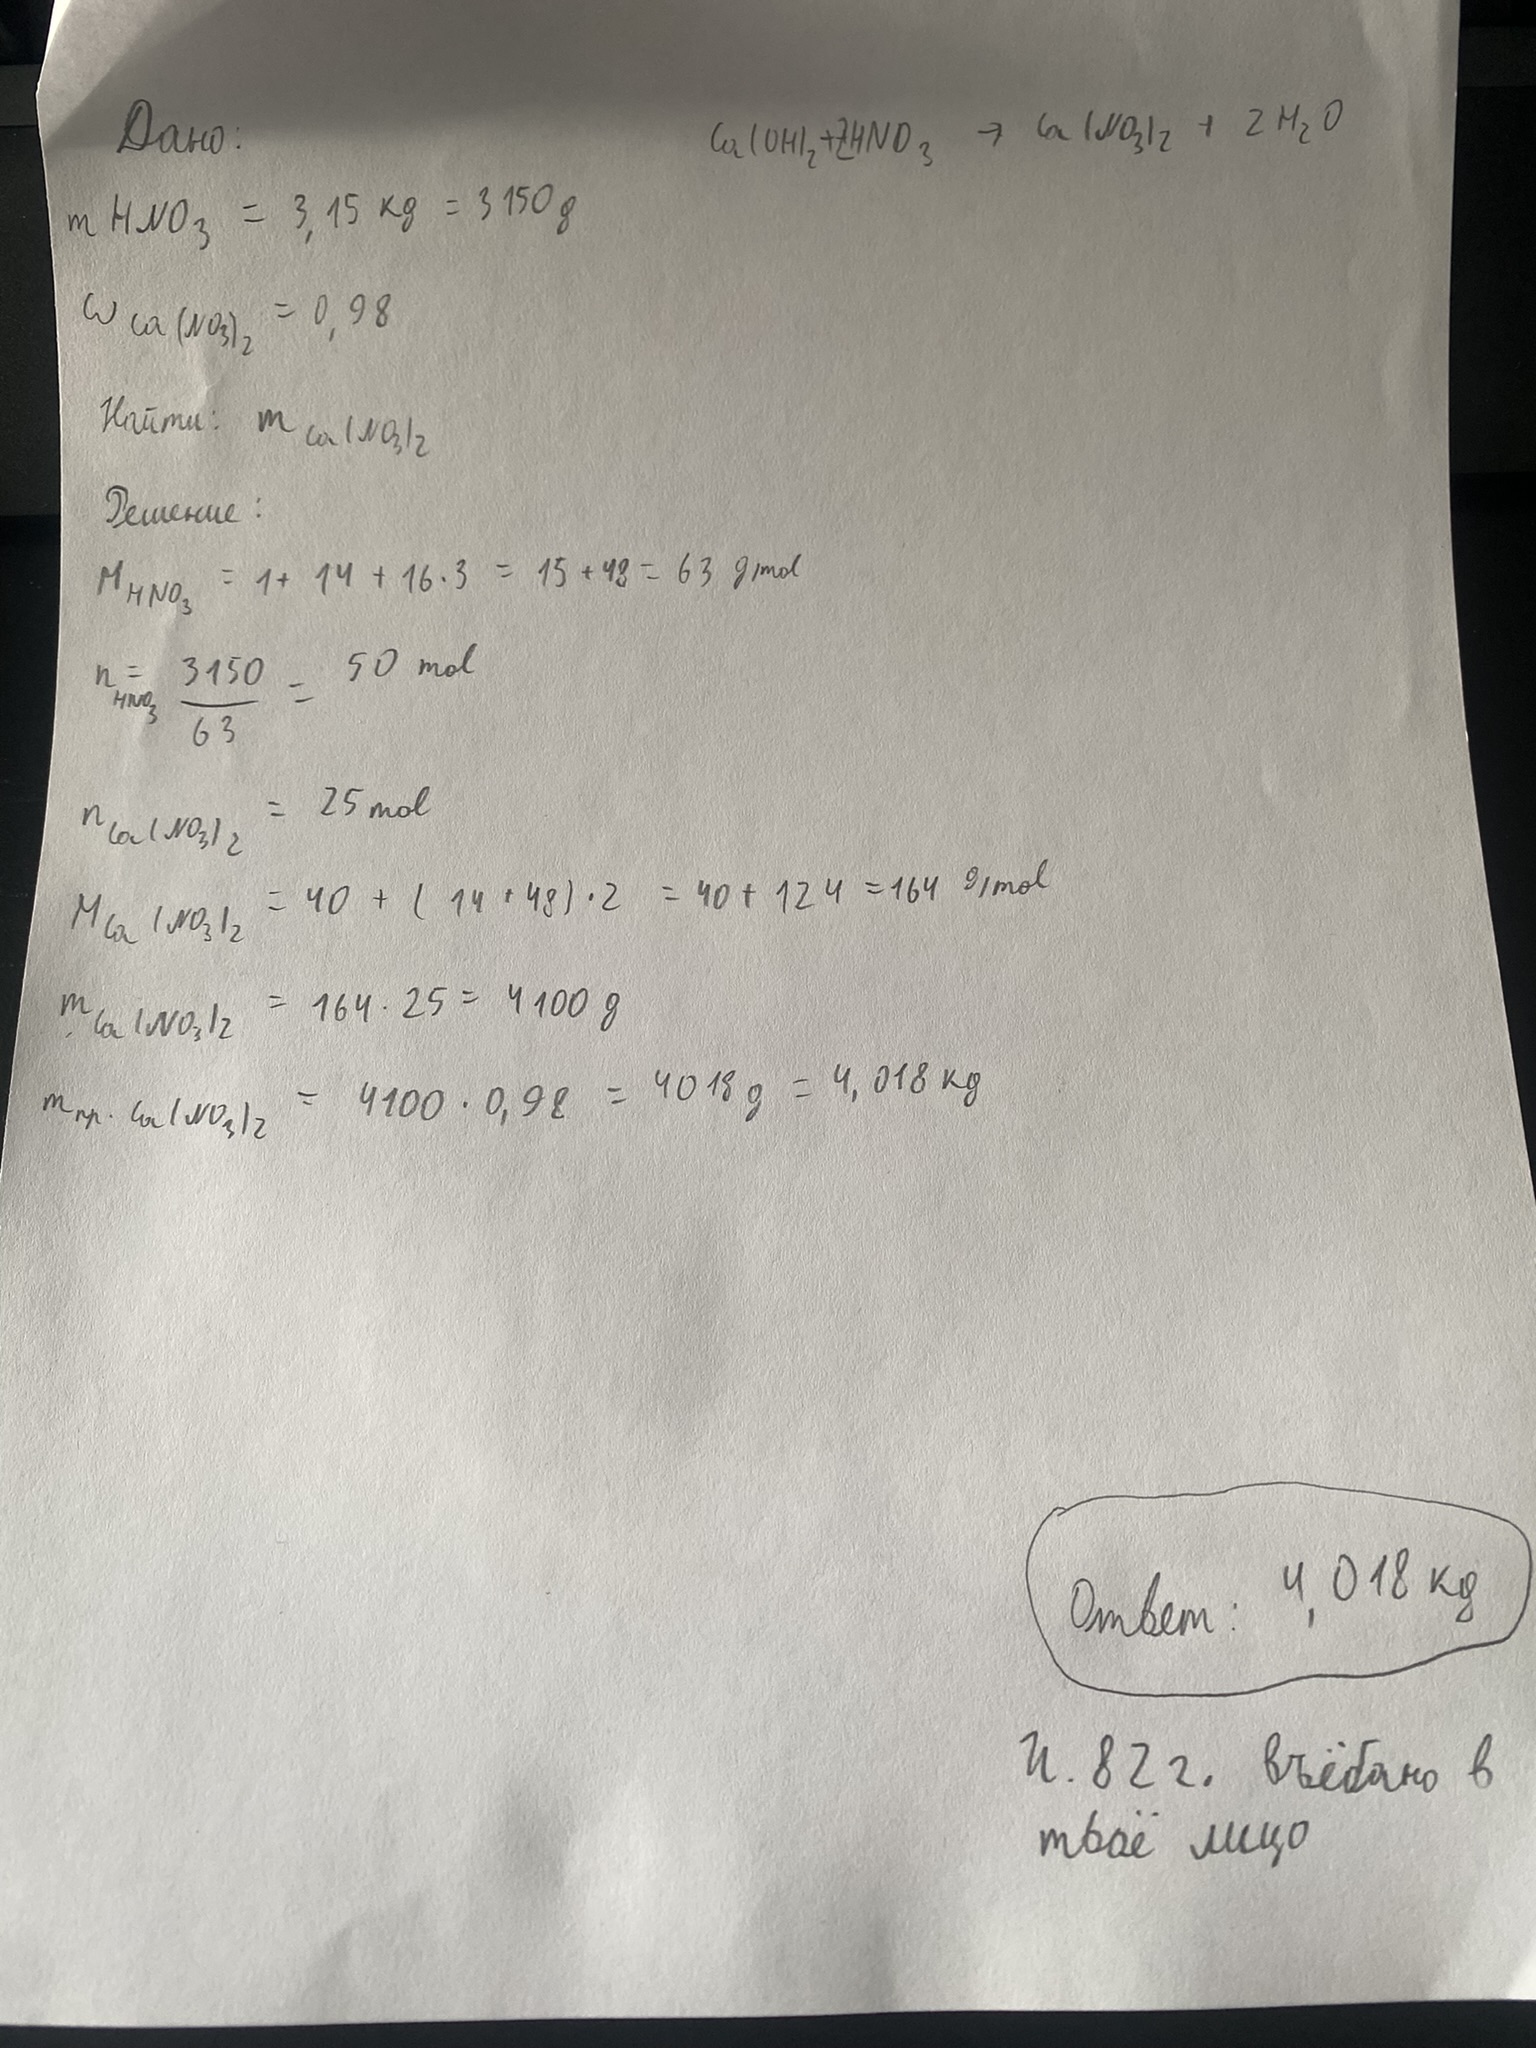 Дано:
Ca(OH)₂+2HNO₃ → Ca(NO₃)₂ + 2H₂O
m HNO₃ = 3,15 kg = 3150g
ω Ca(NO₃)₂ = 0,98
Найти: m Ca(NO₃)₂
Решение:
M HNO₃ = 1+ 14 + 16·3 = 15+48= 63 g/mol
n HNO₃ = 3150/63 = 50 mol
n Ca(NO₃)₂ = 25 mol
M Ca(NO₃)₂ = 40 + (14+48)·2 = 40+124 =164 g/mol
m Ca(NO₃)₂ = 164·25= 4100 g
m пр. Ca(NO₃)₂ = 4100·0,98 = 4018g = 4,018 kg
Ответ: 4,018 kg
И. 82 г. въёбано в
твоё лицо